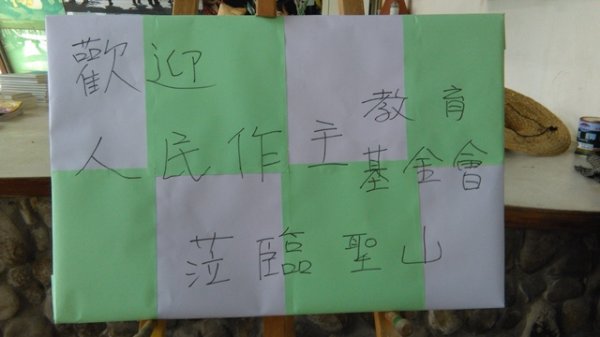 歡迎
人民作主教育基金會
蒞臨聖山